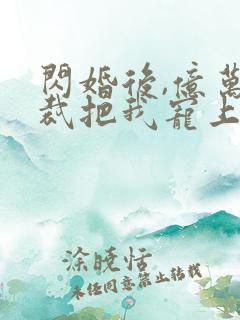 閃婚後,億萬
裁把我寵上
涂曉恬
未经同意禁止转载